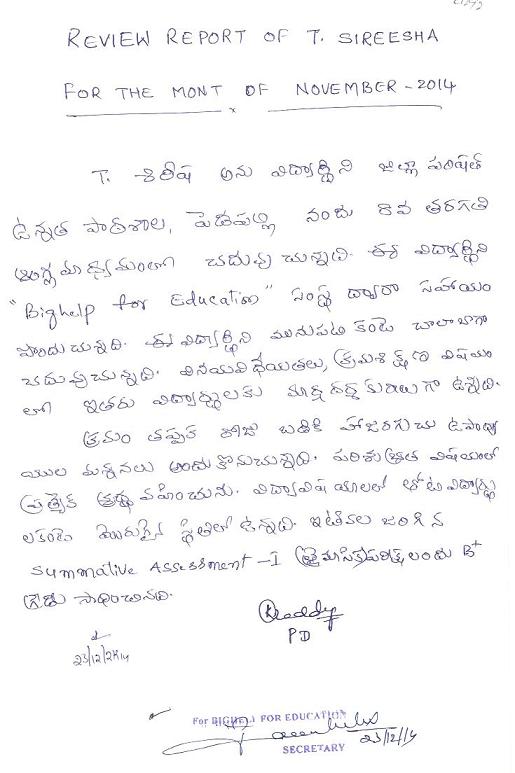 REVIEW REPORT OF T. SIREESHA
FOR THE MONT OF NOVEMBER - 2014
T. శిరీష అను విద్యార్థిని జిల్లా పరిషత్
ఉన్నత పాఠశాల, పెదపల్లి నందు 8వ తరగతి
ఆంగ్లమాధ్యమంలో చదువు చున్నది. ఈ విద్యార్థిని
"Bighelp for Education" సంస్థ ద్వారా సహాయం
పొందు చున్నది. ఈ విద్యార్థిని మునుపటి కంటె చాలా బాగా
చదువుచున్నది. వినయవిధేయతలు, క్రమశిక్షణ విషయం
లో ఇతరు విద్యార్థులకు మార్గదర్శకురాలు గా ఉన్నది.
క్రమం తప్పక రోజు బడికి హాజరగుచు ఉపాధ్యా
యుల మన్ననలు అందుకొనుచున్నది. పరిశుభ్రత విషయంలో
ప్రత్యేక శ్రద్ధ వహించును. విద్యావిషయాలలో తోటి విద్యార్థు
లకంటె మెరుగైన స్థితిలో ఉన్నది. ఇటీవల జరిగిన
Summative Assessment - I త్రైమాసిక పరీక్షలందు B+
గ్రేడు సాధించినది.
KReddy
PD
23/12/2014
For BIGHELP FOR EDUCATION
23/12/14
SECRETARY